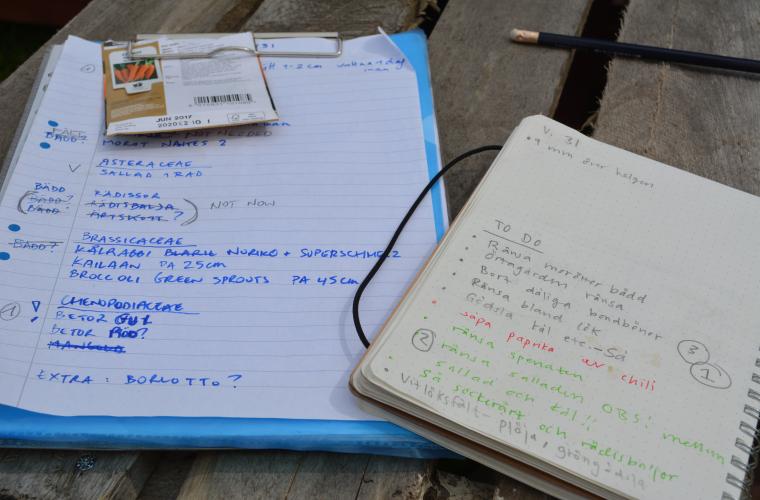 31
1-2 cm
JUN 2017
NOT NEEDED
BÄDD?
MOROT NANTES 2
ASTERACEAE
SALLAD 1 RAD
BÄDD
BÄDD?
BÄDD?
RÄDISOR
ÄRTSKOTT?
NOT NOW
BÄDD?
BRASSICACEAE
KÅLRABBI BLARIL NORIKO + SUPERSCHMELZ
KAILAAN PÅ 25cm
BROCCOLI GREEN SPROUTS PÅ 45cm
1
CHENOPODIACEAE
BETOR GUL
BETOR RÖD?
MANGOLD
EXTRA: BORLOTTO?
V. 31
9 mm över helgen
TO DO
Rensa morötter bädd
Örtagården rensa
Bort dåliga bondbönor
Rensa bland lök
Gödsla kål etc. - Så
såpa paprika av chili
3
1
2
rensa spenaten
rensa salladen OBS! mellan
sallad och kål!!
Så sockerärt och rädisbaljor
Vitlöksfält - plöja, gröngödsla